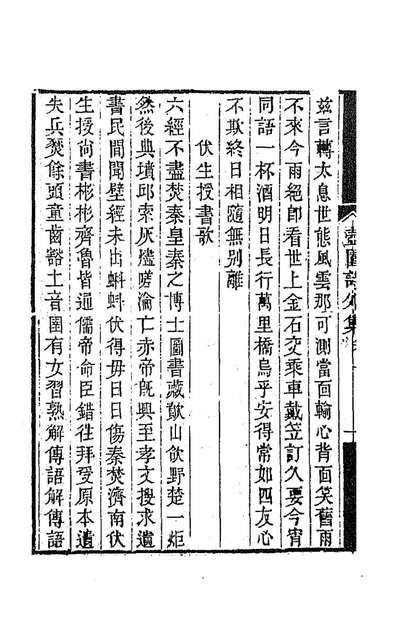 壺園詩外集卷一
茲言轉太息世態風雲那可測當面輸心背面笑舊雨
不來今雨絕卽看世上金石交乘車戴笠訂久要今宵
同語一杯酒明日長行萬里橋烏乎安得常如四友心
不欺終日相隨無别離
伏生授書歌
六經不盡焚秦皇秦之博士圖書藏歕山歕野楚一炬
然後典墳邱索灰燼嗟淪亡赤帝旣興至孝文搜求遺
書民間聞壁經未出蝌蚪伏得毋日日傷秦焚濟南伏
生授尙書彬彬齊魯皆通儒帝命臣錯往拜受原本遺
失兵燹餘頭童齒豁土音囿有女習熟解傳語解傳語